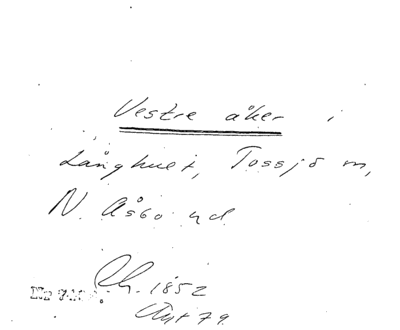 Vestre åker i
Långhult, Tossjö m,
N. Åsbo hd.
Rh. 1852